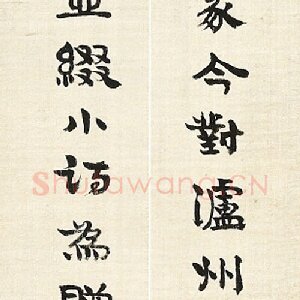 今對瀘州
並綴小詩為贈
Shufawang.CN